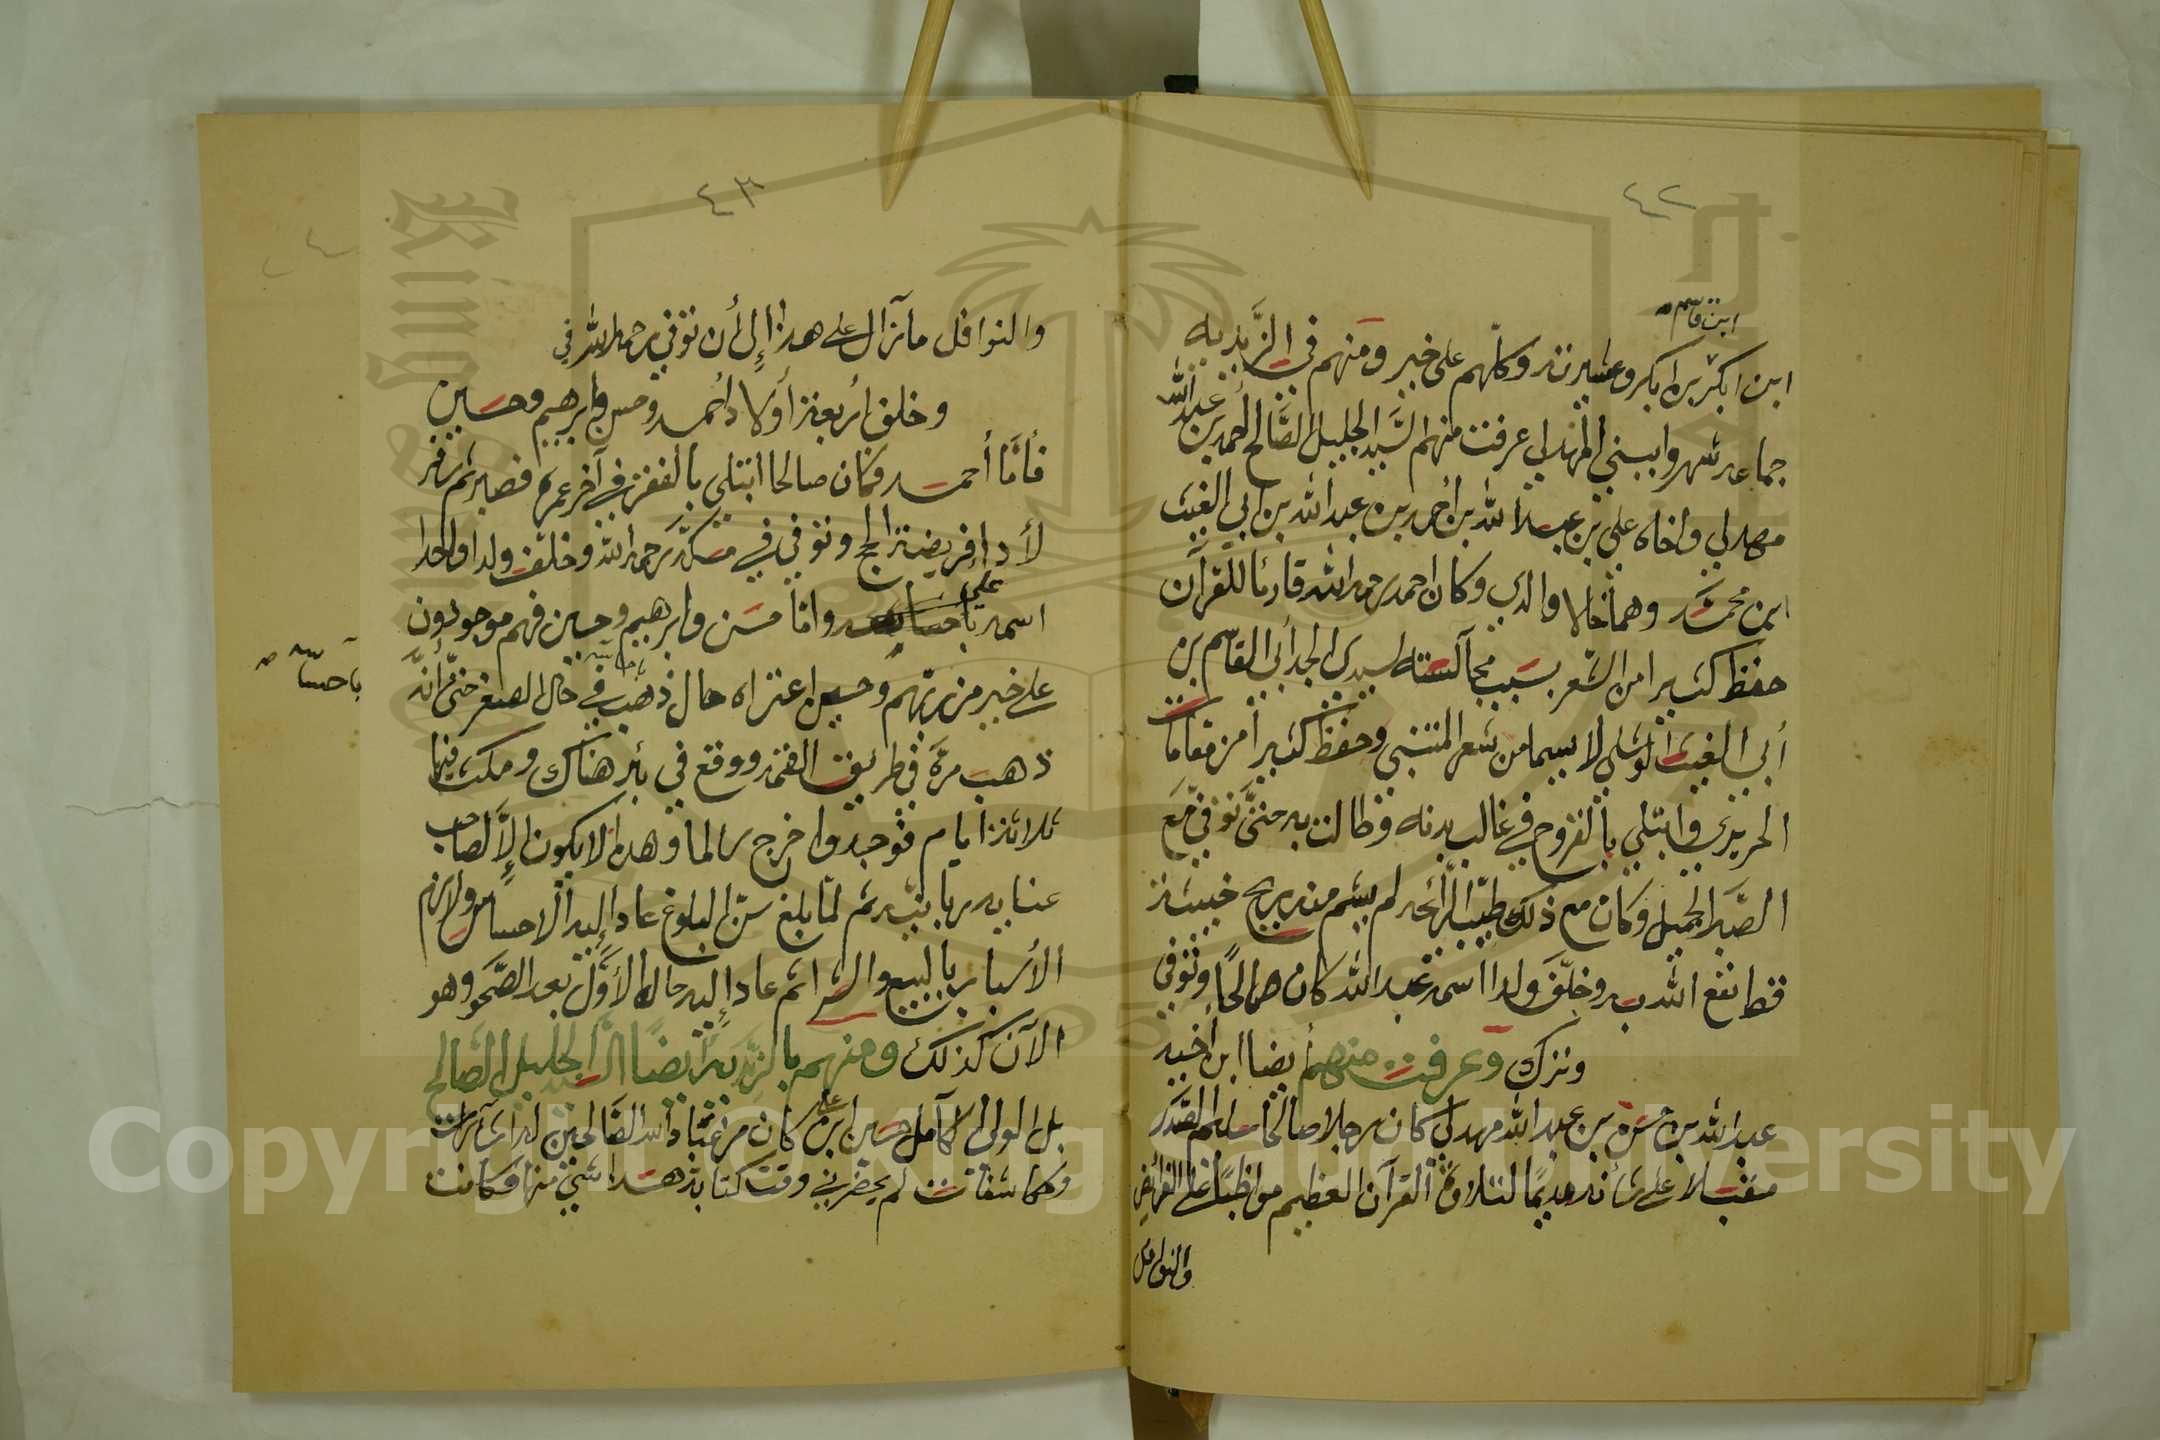 ٤٢
ابن قاسم صح
ابن ابكر بن ابكر وعشيرته وكلهم على خير ومنهم في الزيدية
جماعه شهروا ببني المهدلي عرفت منهم السيد الجليل الصالح أحمد بن عبد الله
مهدلي واخاه علي بن عبد الله بن أحمد بن عبد الله بن أبي الغيث
ابن محمد وهما خالا والدي وكان احمد رحمه الله قارئا للقرآن
حفظ كثيرا من الشعر بسبب مجالسته لسيدي الجد أبي القاسم بن
أبي الغيث الوشلي لا سيما من شعر المتنبي وحفظ كثيرا من مقامات
الحريري وابتلي بالقروح في غالب بدنه وطالت به حتى توفي مع
الصبر الجميل وكان مع ذلك طيب الرائحه لم يشم منه ريح خبيثة
قط نفع الله به وخلف ولدا اسمه عبد الله كان صالحا وتوفي
وترك وعرفت منهم أيضا ابن أخيه
عبد الله بن حسن بن عبد الله مهدلي كان رجلا صالحا سليم الصدر
مقبلا على شأنه مديما لتلاوة القرآن العظيم مواظبا على الفرائض
والنوافل
٤٣
والنوافل مازال على هذا إلى أن توفي رحمه الله في
وخلف أربعة أولاد أحمد وحسن وابرهيم وحسين
فأما أحمد فكان صالحا ابتلي بالفقر في آخر عمره فصبر ثم سافر
لأداء فريضة الحج وتوفي في مكة رحمه الله وخلف ولدا واحدا
اسمه علي واما حسن وابرهيم وحسين فهم موجودون
باحساسه صح
على خير من ربهم وحسين اعتراه حال ذهب في حال الصغر حتى أنه
ذهب مرة في طريق القمة ووقع في بئر هناك ومكث فيها
ثلاثة ايام فوجدوا خرج سالما وهذا لا يكون إلا لصاحب
عناية ربانية ثم لما بلغ سن البلوغ عاد إليه الاحساس ولازم
الأسباب بالبيع والشراء ثم عاد إليه حاله الأول بعد الصحو وهو
الآن كذلك ومنهم بالزيدية أيضا السيد الجليل الصالح
بل الولي الكامل حسين بن علي كان من عباد الله الصالحين له كرامات
ومكاشفات لم يحضرني وقت كتابة هذا شي منها وكانت